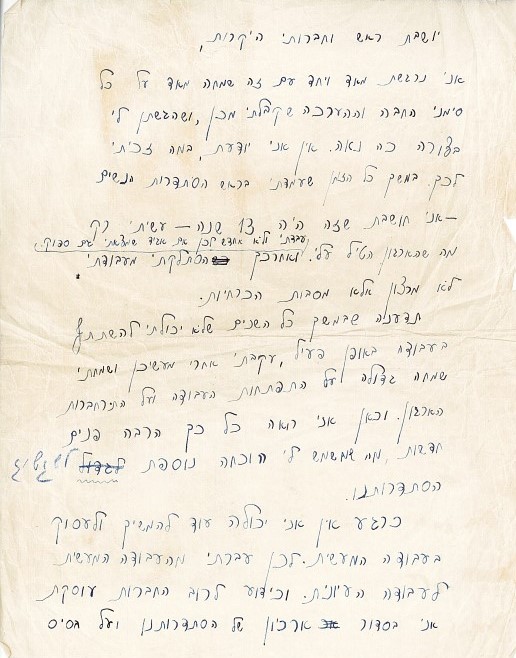 יושבת ראש וחברותי היקרות,
אני נרגשת מאד ויחד עם זה שמחה מאד על כל
סימני החבה וההערכה שקבלתי מכן, ושהגשתן לי
בצורה כה נאה. אין אני יודעת, במה זכיתי
לכך. במשך כל הזמן שעמדתי בראש הסתדרות הנשים
– אני חושבת שזה היה 13 שנה – עשיתי רק
עבדתי ולא אחדש לכן אם אגיד שמצאתי גם ספוק.
מה שהארגון הטיל עלי. ואחרכך הסתלקתי מעבודתי
לא מרצון אלא מסבות הכרחיות.
תדענה שבמשך כל השנים שלא יכולתי להשתתף
בעבודה באופן פעיל, עקבתי אחרי מעשיכן ושמחתי
שמחה גדולה על התפתחות העבודה ועל התרחבות
הארגון. וכאן אני רואה כל כך הרבה פנים
חדשות, מה שמשמש לי הוכחה נוספת לגדול
הסתדרותנו.
כרגע אין אני יכולה עוד להמשיך ולעסוק
בעבודה המעשית. לכן עברתי מהעבודה המעשית
לעבודה העיונית. וכידוע לרוב החברות עוסקת
אני בסדור ארכיון של הסתדרותנו ועל בסיס